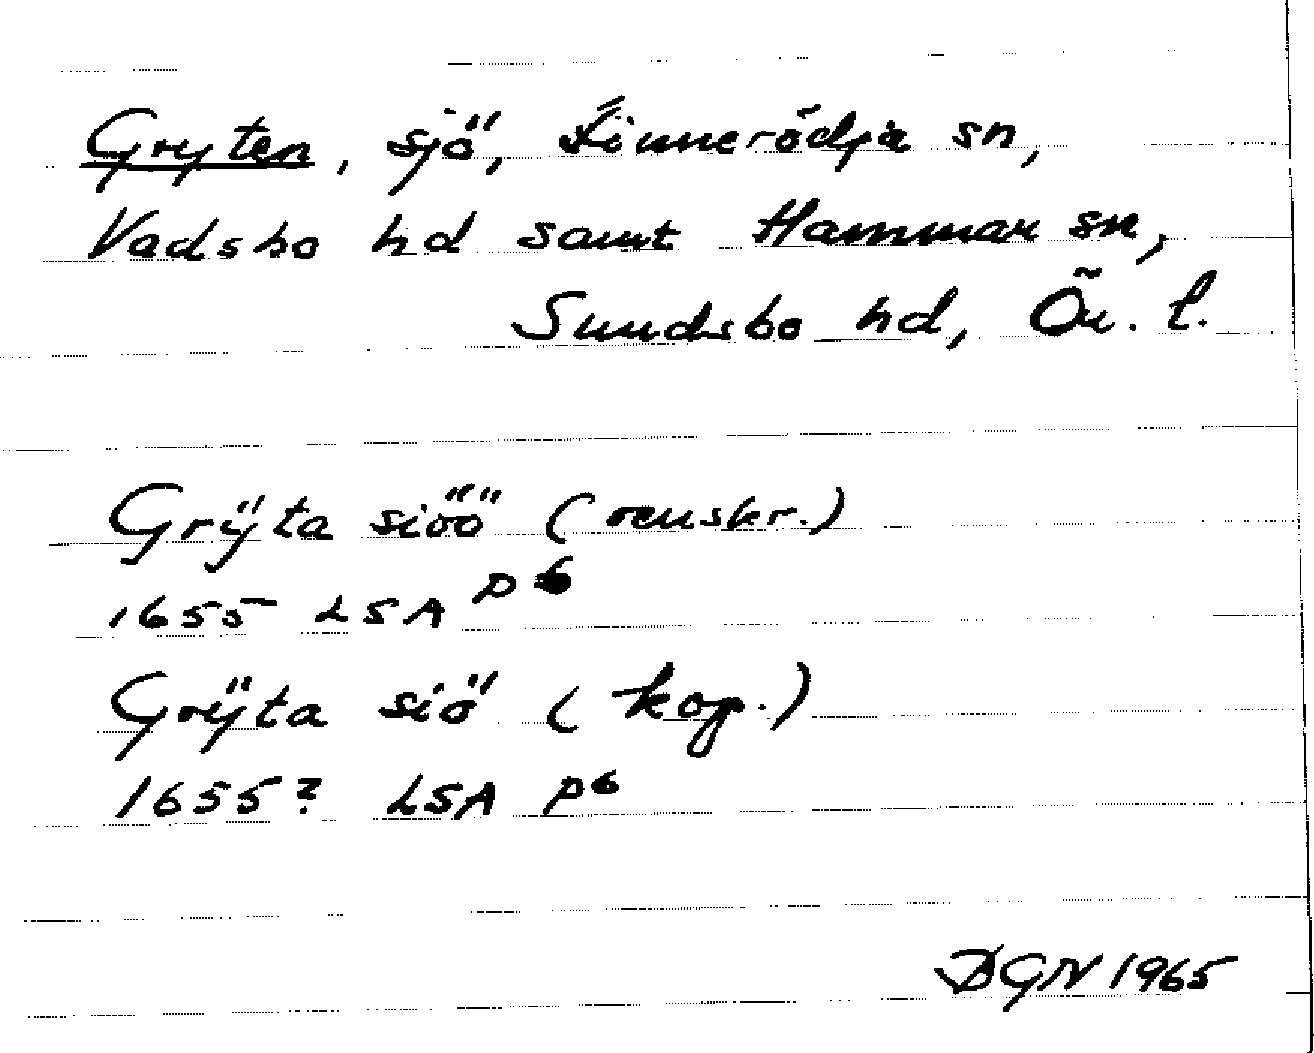 Gryten, sjö, Finnerödja sn,
Vadsbo hd samt Hammar sn,
Sundsbo hd, Ör. l.
Grÿta siöö (renskr.)
1655 LSA P6
Grÿta siö (kop.)
1655? LSA P6
DGN 1965